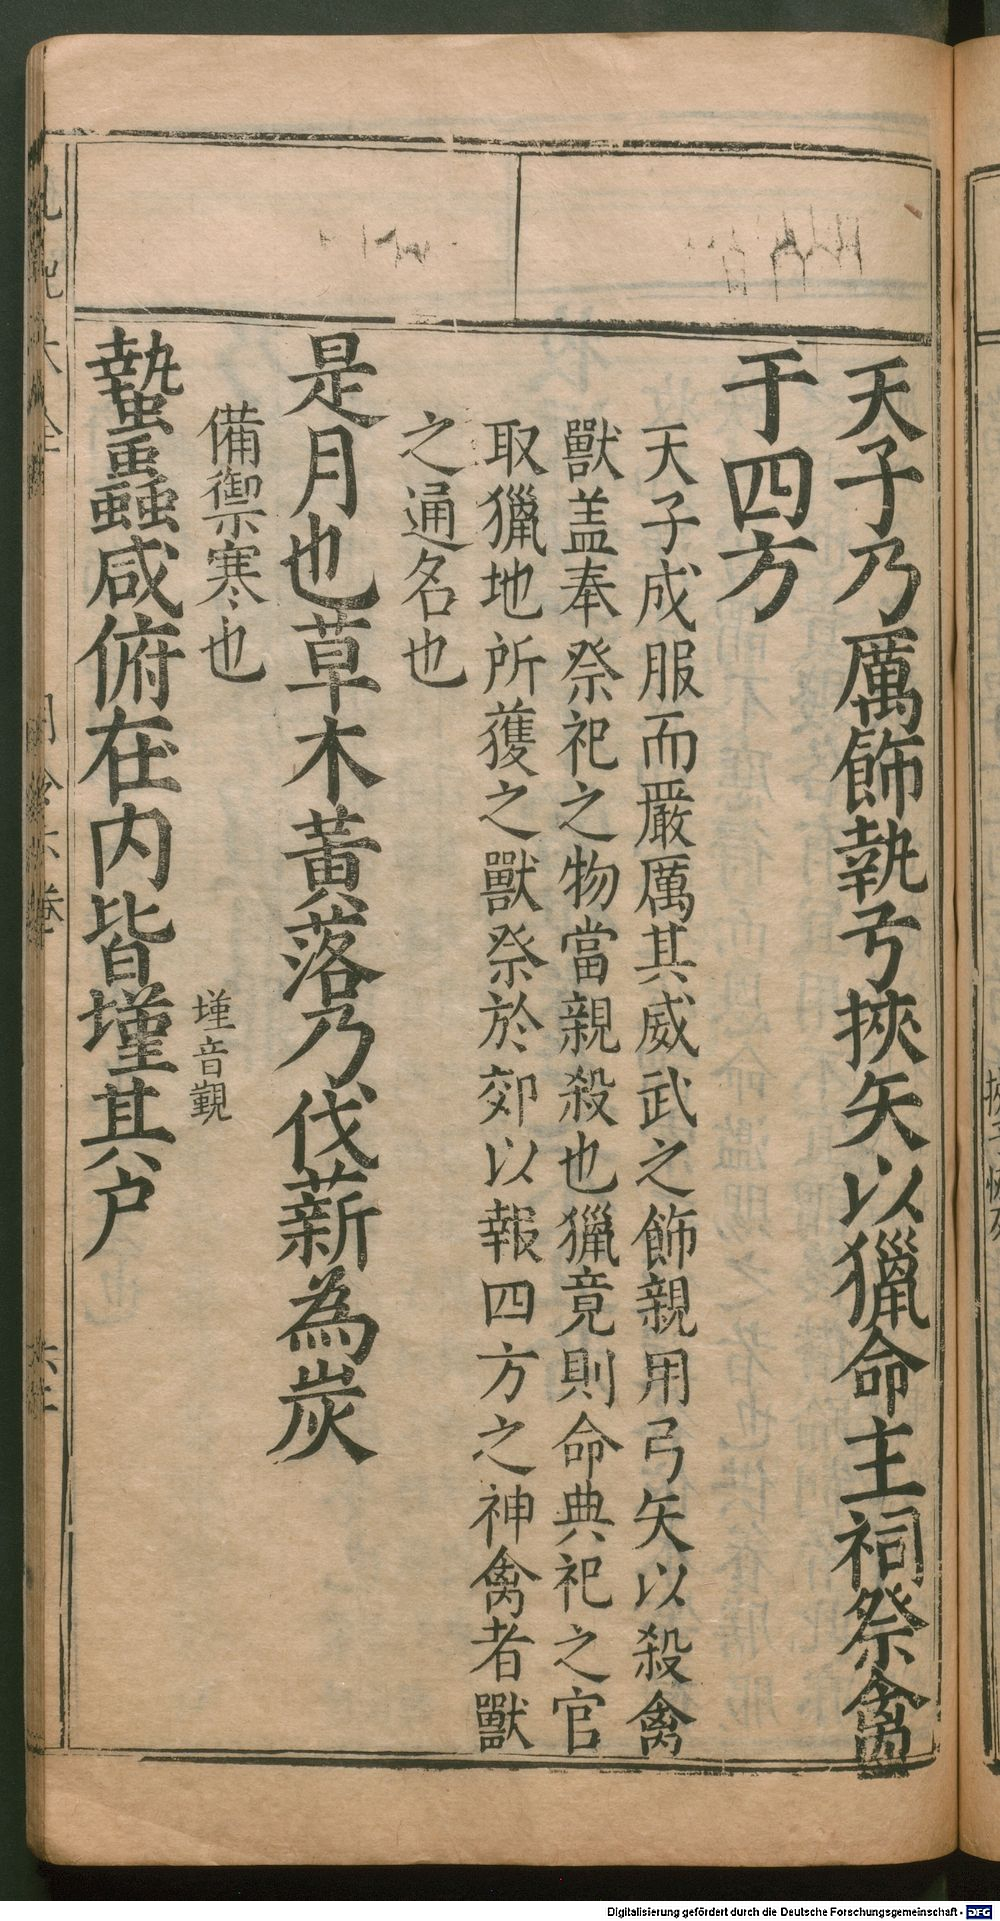 天子乃厲飾執弓挾矢以獵命主祠祭禽
于四方
天子成服而嚴厲其威武之飾親用弓矢以殺禽
獸盖奉祭祀之物當親殺也獵竟則命典祀之官
取獵地所獲之獸祭於郊以報四方之神禽者獸
之通名也
是月也草木黃落乃伐薪為炭
備禦寒也
蟄蟲咸俯在内皆墐其户
墐音覲
Digitalisierung gefördert durch die Deutsche Forschungsgemeinschaft - DFG